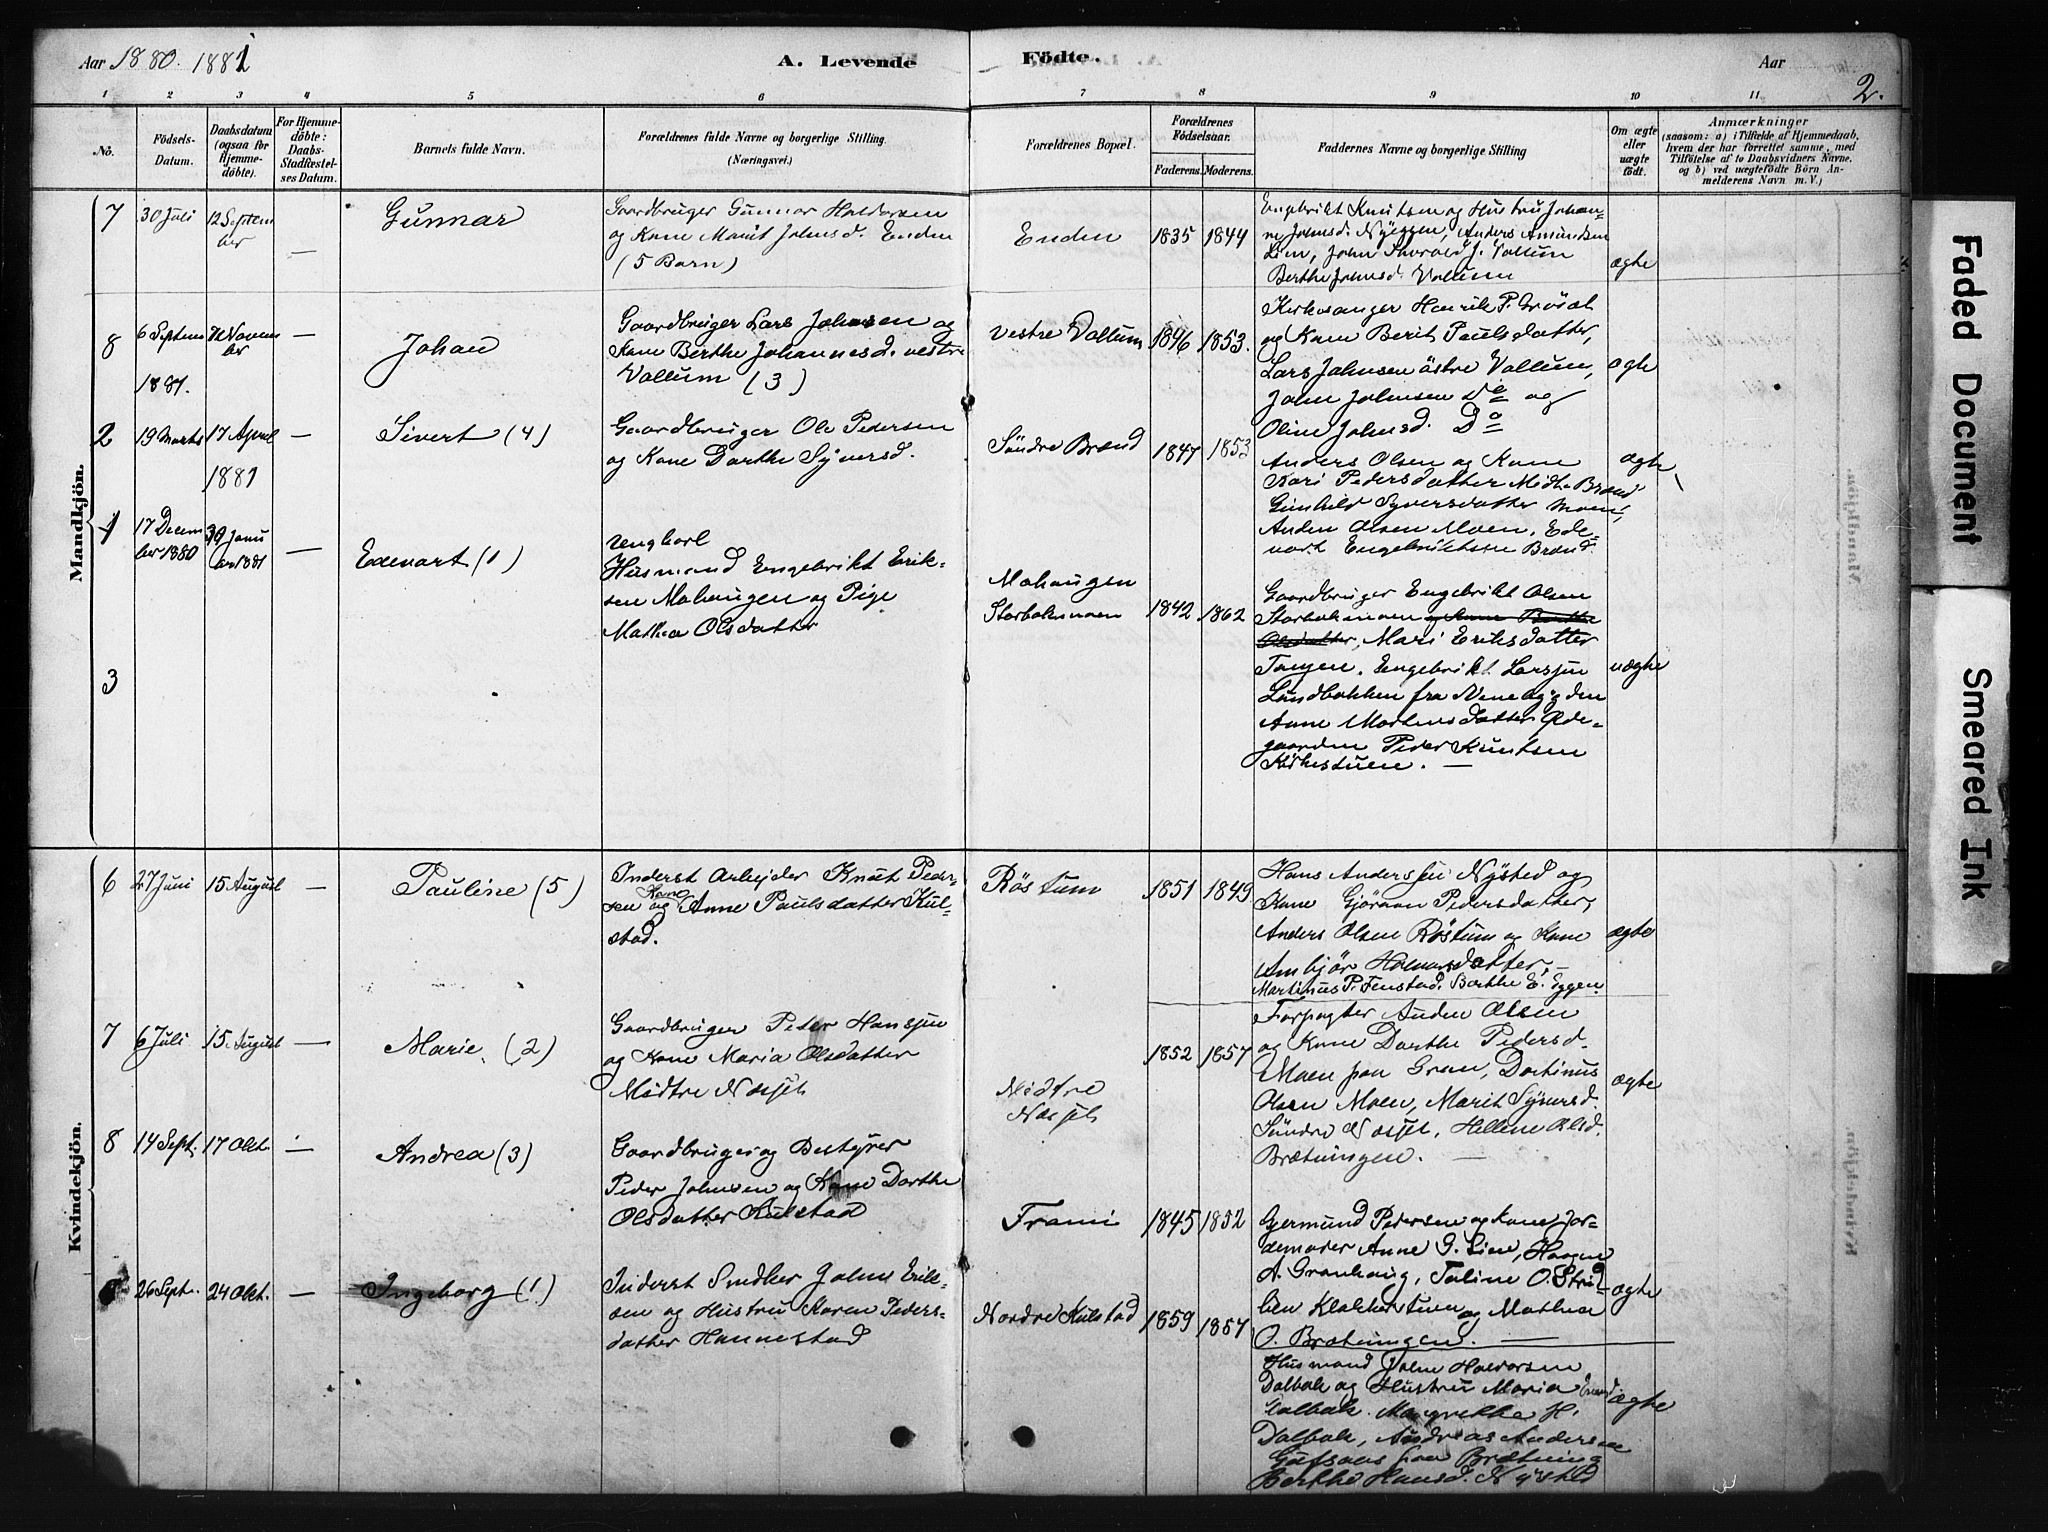 Aar 1880. 1881
A. Levende
Födte.
Aar
2.
1 2 3 4 5 6 7 8 9 10 11
No.
Födsels-
Datum.
Daabsdatum
(ogsaa for
Hjemme-
döbte).
For Hjemme-
döbte:
Daabs-
Stadfæstel-
ses Datum.
Barnets fulde Navn.
Forældrenes fulde Navne og borgerlige Stilling.
(Næringsvei.)
Forældrenes Bopæl.
Forældrenes
Födselsaar.
Faderens. Moderens.
Faddernes Navne og borgerlige Stilling
Om ægte
eller
uægte
födt.
Anmærkninger
(saasom: a) i Tilfælde af Hjemmedaab,
hvem der har forrettet samme, med
Tilföielse af to Daabsvidners Navne,
og b) ved uægtefödte Börn An-
melderens Navn m. V.)
Mandkjön.
7
30 Juli
12 Septem
ber
—
Gunnar
Gaardbruger Gunnar Haldorsen
og Kone Marit Johnsd. Enden
(5 Barn)
Enden
1835 1844
Engebrikt Knutsen og Hustru Johan-
ne Johnsd. Nyeggen, Anders Amundsen
Lien, John J. Vollum
Berthe Johnsd. Vollum
ægte
8
6 Septem
ber
—
Johan
Gaardbruger Lars Johnsen og
Kone Berthe Johannesd. vestre
Vollum (3)
Vestre Vollum
1846 1853.
Kirkesanger Henrik P.
og Kone Berit Paulsdatter,
Lars Johnsen östre Vollum,
John Johnsen Do og
Oline Johnsd. Do
ægte
1881.
2
19 Marts
17 April
1881
—
Sivert (4)
Gaardbruger Ole Pedersen
og Kone Dorthe Syversd.
Söndre Brænd
1847 1853
Anders Olsen og Kone
Kari Pedersdatter Midt Brænd
Gunhild Syversdatter Moen,
Anden Olsen Moen, Ede-
vart Engebriktsen Brænd.
ægte
1
17 Decem
ber 1880
30 Janu
ar 1881
—
Edevart (1)
Ungkarl
Husmand Engebrikt Erik-
sen Mohaugen og Pige
Mathea Olsdatter
Mohaugen
Storbakmoen
1842 1862
Gaardbruger Engebrikt Olsen
Storbakmoen og Kone Berthe
Olsdatter, Mari Eriksdatter
Tangen. Engebrikt Larssen
Lundbakken fra Venebygden
Anne Mortensdatter Öde-
gaarden Peder Knutsen
Kirkestuen. —
uægte
3
Kvindekjön.
6
27 Juni
15 August
—
Pauline (5)
Inderst Arbejder Knut Peder-
sen og Kone Anne Paulsdatter Kul-
stad.
Röstum
1851 1849
Hans Anderssen Nysted og
Kone Gjöran Pedersdatter,
Anders Olsen Röstum og Kone
Ambjör Halvorsdatter —
Martinus P. Finstad. Berthe E. Eggen
ægte
7
6 Juli
15. August
—
Marie. (2)
Gaardbruger Peter Hanssen
og Kone Maria Olsdatter
Midtre Næsset
Midtre
Næsset
1852 1857
Forpagter Anden Olsen
og Kone Dorthe Pedersd.
Moen paa Gran, Dortinus
Olsen Moen, Marit Syversd.
Söndre Næsset, Hellene Olsd.
Brætningen. —
ægte
8
14 Sept.
17 Okt.
—
Andrea (3)
Gaardbruger og Bestyrer
Peder Johnsen og Kone Dorthe
Olsdatter Kulstad
Frami
1845 1852
Germund Pedersen og Kone Jor-
demoder Anne G. Lien, Haagen
A. Granhaug, Taline O.
Klokkerstuen og Mathea
O. Brætningen. —
ægte
26 Sept.
24 Okt.
—
Ingeborg (1)
Inderst Smedker John Erik-
sen og Hustru Karen Peders-
datter Hannestad
Nordre Kulstad
1859 1857
Husmand John Halvorsen
Dalbak og Hustru Maria
Dalbak. Margrethe H.
Dalbak, Andreas Andersen
paa Brætning
Berthe Hansd. Nysted
ægte
Faded Document
Smeared Ink